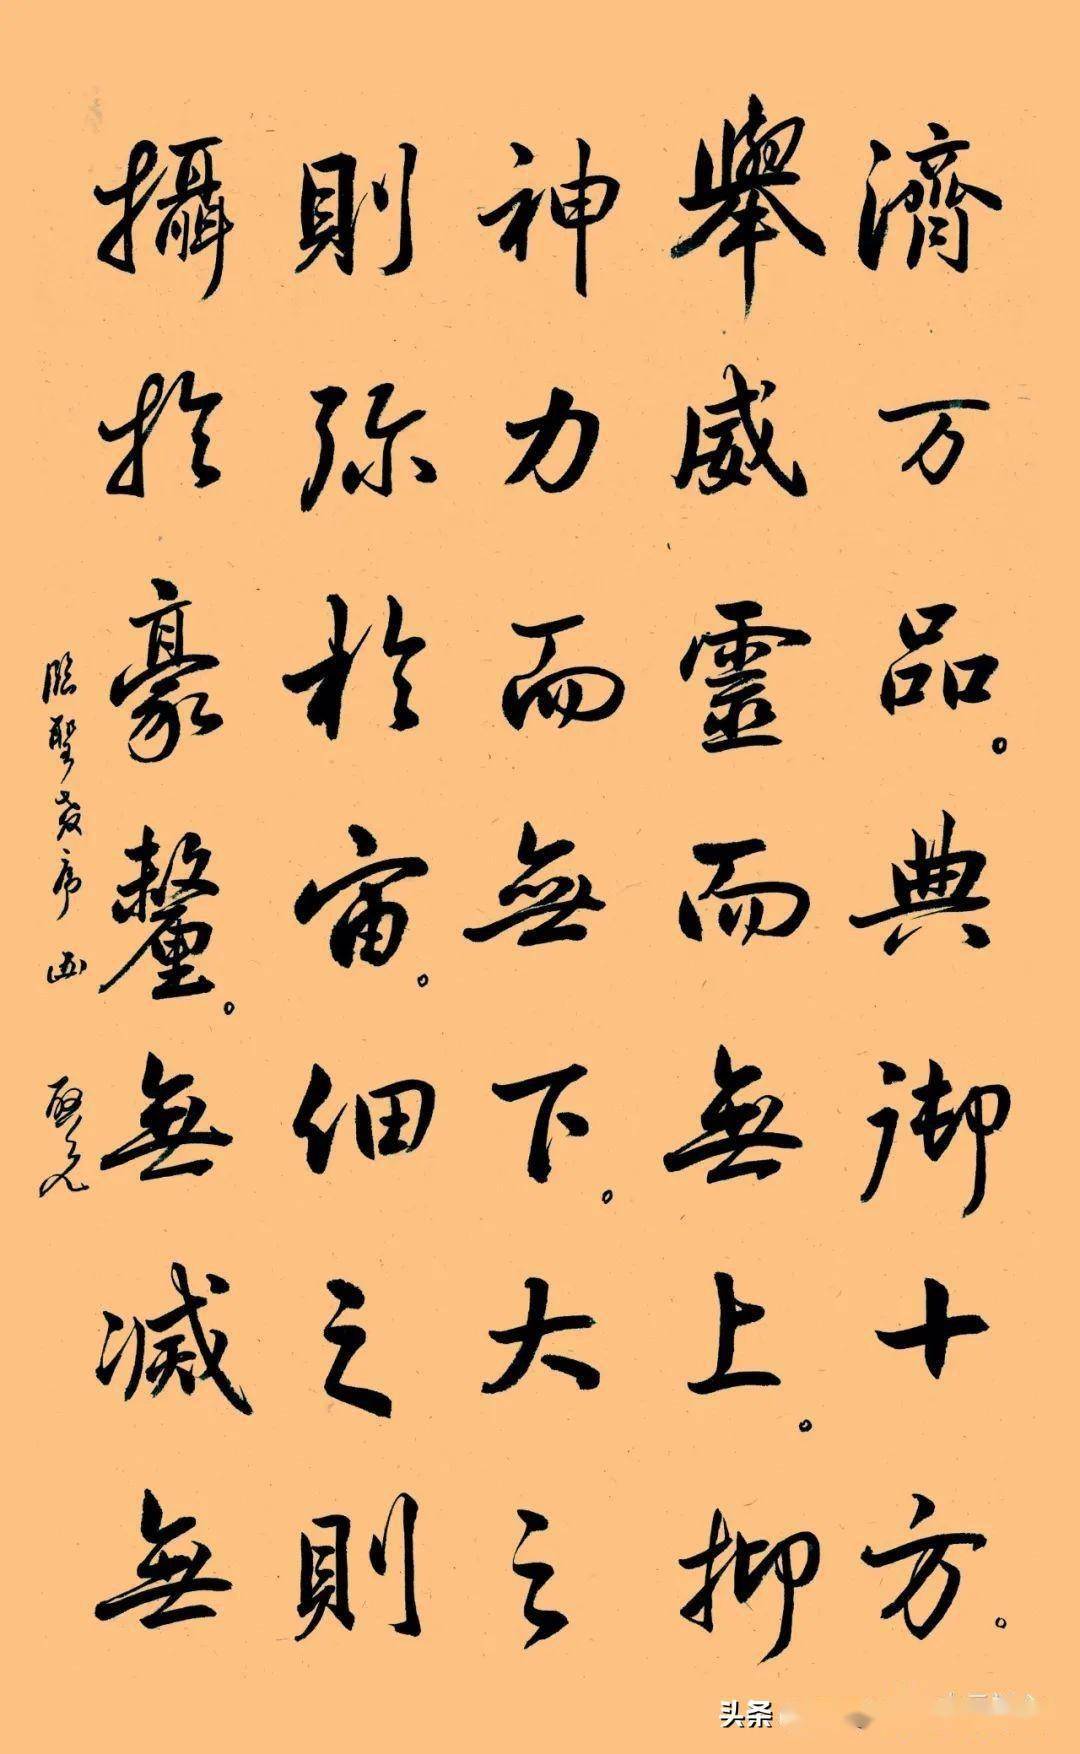 濟万品。典御十方。
舉威靈而無上。抑
神力而無下。大之
則弥於宙。細之則
攝於豪釐。無滅無
臨聖教序 四 啟元
头条